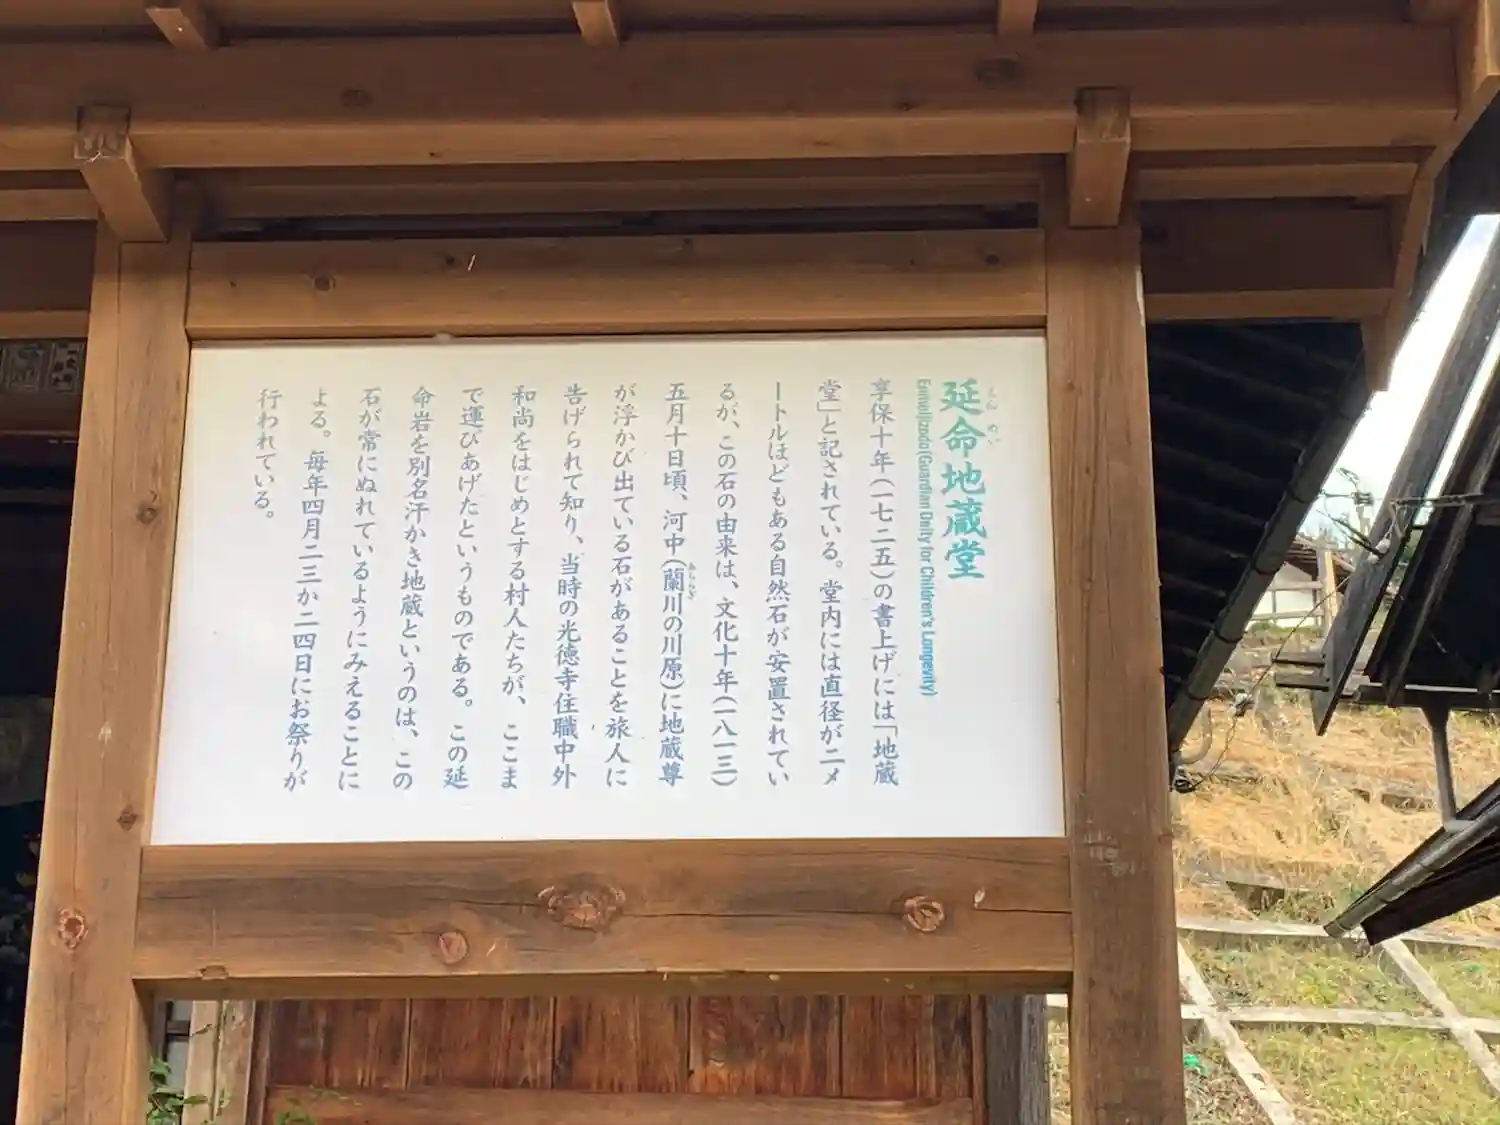 延命地蔵堂
えんめい
Enmeijizodo(Guardian Deity for Children's Longevity)
享保十年(一七二五)の書上げには「地蔵
堂」と記されている。堂内には直径が二メ
ートルほどもある自然石が安置されてい
るが、この石の由来は、文化十年(一八一三)
五月十日頃、河中(蘭川の川原)に地蔵尊
あららぎ
が浮かび出ている石があることを旅人に
告げられて知り、当時の光徳寺住職中外
和尚をはじめとする村人たちが、ここま
で運びあげたというものである。この延
命岩を別名汗かき地蔵というのは、この
石が常にぬれているようにみえることに
よる。毎年四月二三か二四日にお祭りが
行われている。